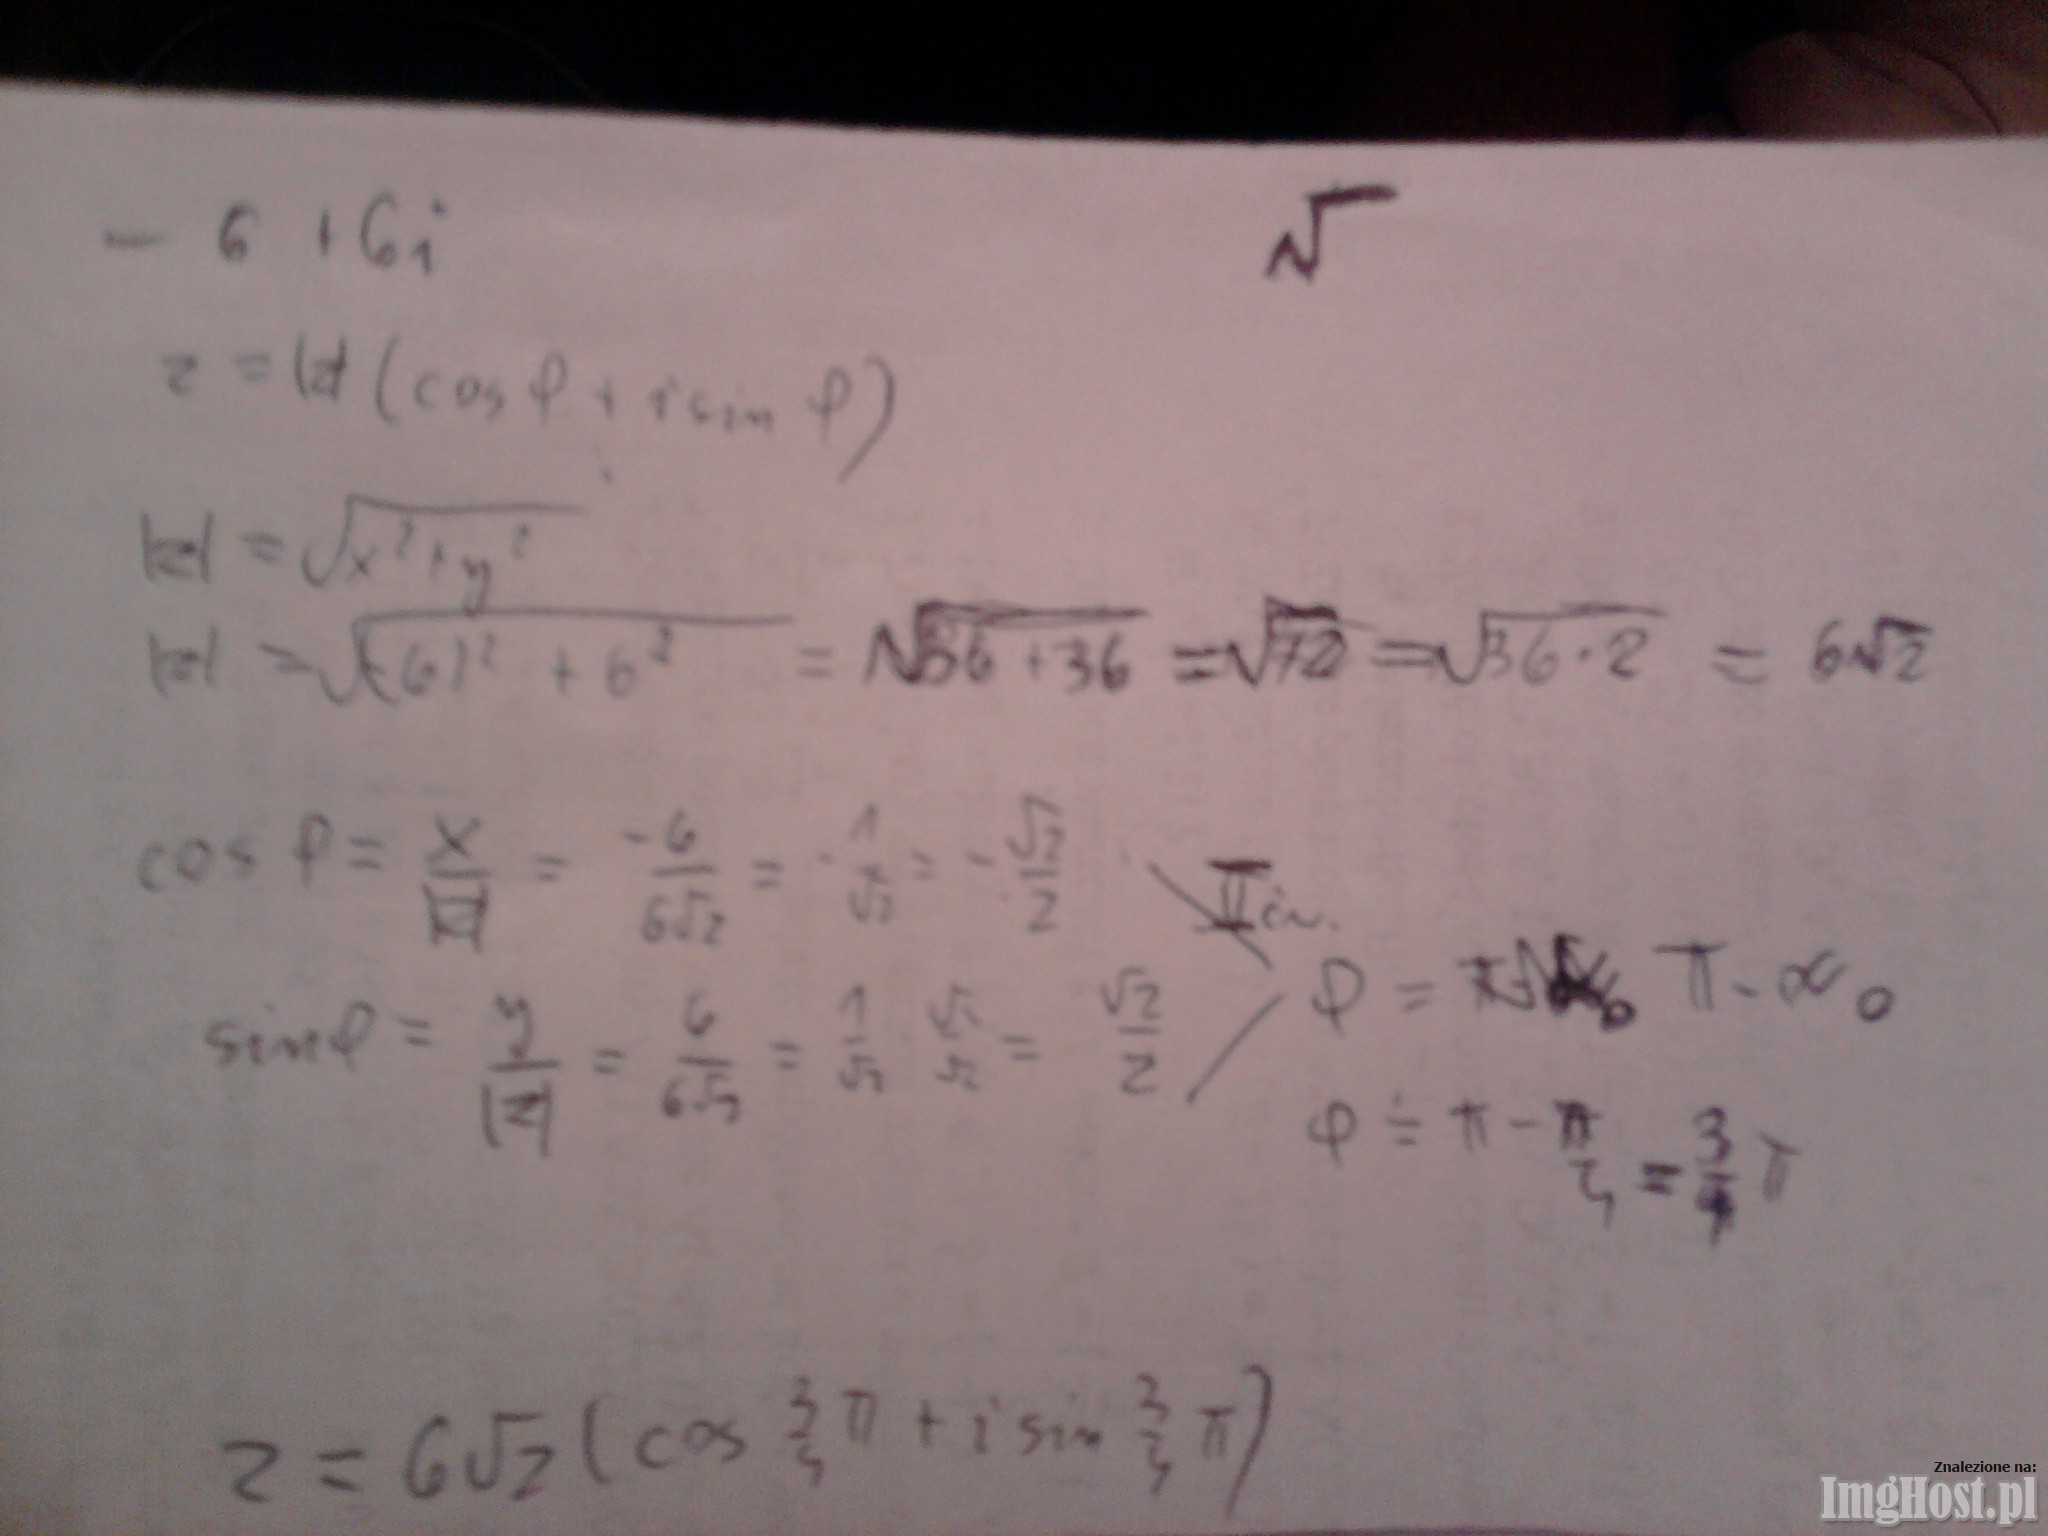 - 6 + 6i
√
z = |z| (cos φ + i sin φ)
|z| = √(x² + y²)
|z| = √((-6)² + 6²) = √(36 + 36) = √72 = √(36 · 2) = 6√2
cos φ = x/|z| = -6/(6√2) = -1/√2 = -√2/2
II ćw.
φ = π - α₀
sin φ = y/|z| = 6/(6√2) = 1/√2 · √2/√2 = √2/2
φ = π - π/4 = 3/4 π
z = 6√2 (cos 3/4 π + i sin 3/4 π)
Znalezione na:
ImgHost.pl